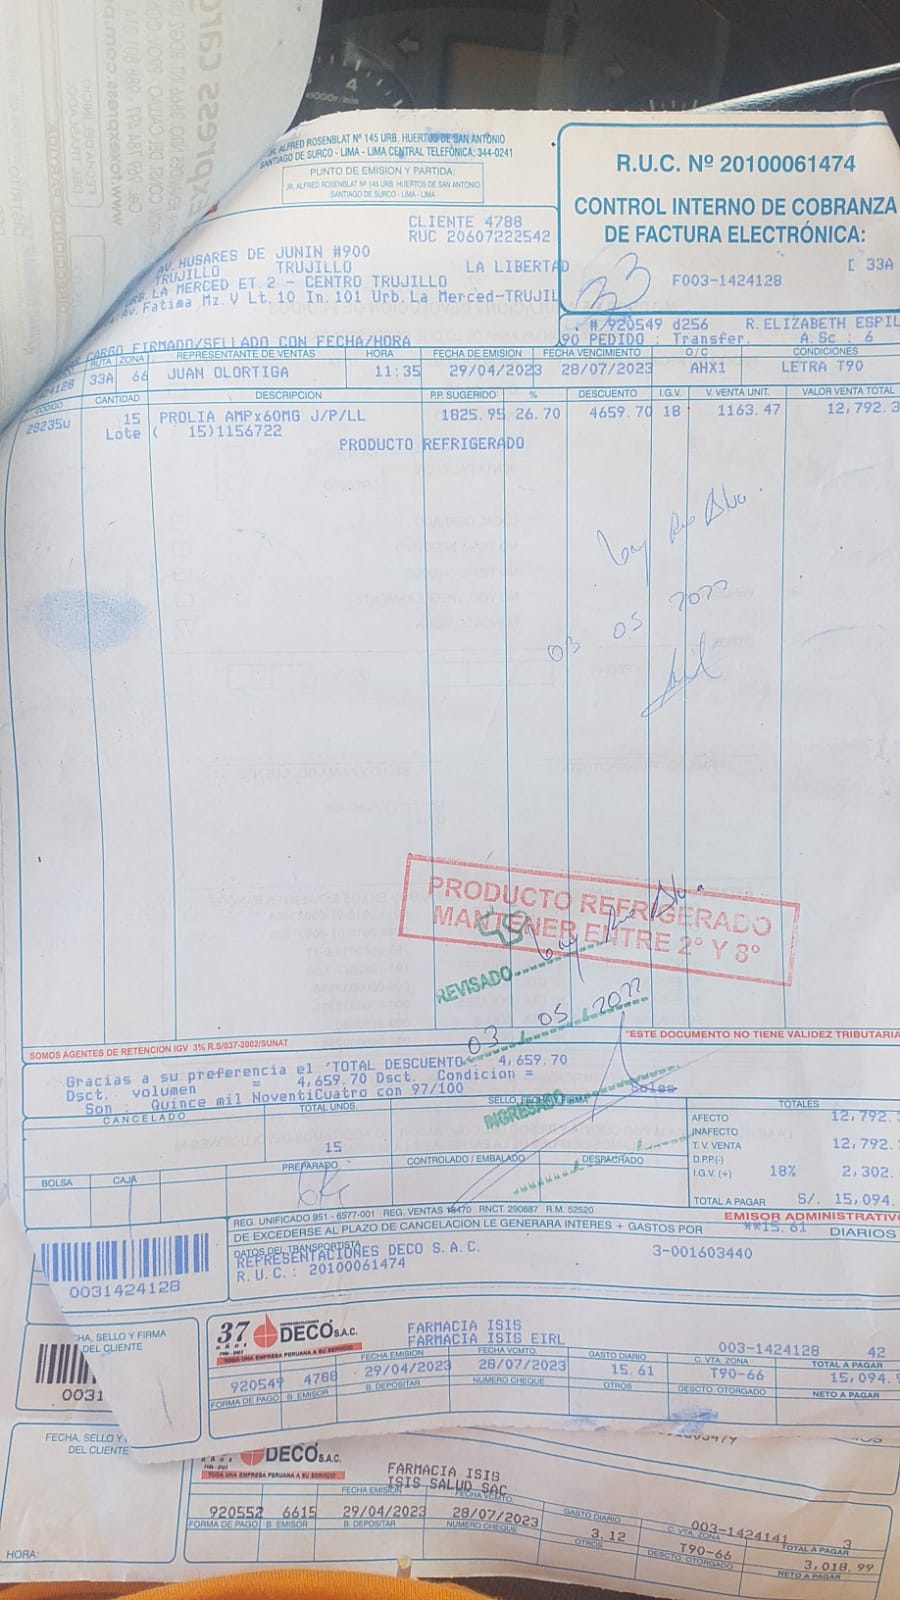 JR. ALFRED ROSENBLAT Nº 145 URB. HUERTOS DE SAN ANTONIO
SANTIAGO DE SURCO - LIMA - LIMA CENTRAL TELEFÓNICA: 344-0241
PUNTO DE EMISION Y PARTIDA:
JR. ALFRED ROSENBLAT Nº 145 URB. HUERTOS DE SAN ANTONIO
SANTIAGO DE SURCO - LIMA - LIMA
R.U.C. Nº 20100061474
CONTROL INTERNO DE COBRANZA
DE FACTURA ELECTRÓNICA:
F003-1424128
[ 33A
33
CLIENTE 4788
RUC 20607222542
AV. HUSARES DE JUNIN #900
TRUJILLO TRUJILLO LA LIBERTAD
URB. LA MERCED ET. 2 - CENTRO TRUJILLO
Av. Fatima Mz. V Lt. 10 In. 101 Urb. La Merced-TRUJIL
#/920549 d256 R. ELIZABETH ESPIL
CARGO FIRMADO/SELLADO CON FECHA/HORA
90 PEDIDO : Transfer. A.Sc : 6
RUTA ZONA REPRESENTANTE DE VENTAS HORA FECHA DE EMISION FECHA VENCIMIENTO O / C CONDICIONES
424128 33A 66 JUAN OLORTIGA 11:35 29/04/2023 28/07/2023 AHX1 LETRA T90
CODIGO CANTIDAD DESCRIPCION P.P. SUGERIDO % DESCUENTO I.G.V. V. VENTA UNIT. VALOR VENTA TOTAL
28235U 15 PROLIA AMPx60MG J/P/LL 1825.95 26.70 4659.70 18 1163.47 12,792.3
Lote ( 15)1156722
PRODUCTO REFRIGERADO
03 05 2022
PRODUCTO REFRIGERADO
MANTENER ENTRE 2º Y 8º
REVISADO
03 05 2022
INGRESADO
SOMOS AGENTES DE RETENCION IGV 3% R.S/037-2002/SUNAT
"ESTE DOCUMENTO NO TIENE VALIDEZ TRIBUTARIA
Gracias a su preferencia el 'TOTAL DESCUENTO 4,659.70
Dsct. volumen = 4,659.70 Dsct. Condicion =
Son : Quince mil NoventiCuatro con 97/100 Soles
CANCELADO TOTAL UNDS. SELLO, FECHA, FIRMA TOTALES
15
AFECTO 12,792.
INAFECTO
T. V. VENTA 12,792.
D.P.P.(-)
I.G.V. (+) 18% 2,302.
TOTAL A PAGAR S/. 15,094.
BOLSA CAJA PREPARADO CONTROLADO / EMBALADO DESPACHADO
REG. UNIFICADO 951 - 6577-001 REG. VENTAS 18470 RNCT. 290887 R.M. 52520
EMISOR ADMINISTRATIVO
DE EXCEDERSE AL PLAZO DE CANCELACION LE GENERARA INTERES + GASTOS POR **15.61 DIARIOS
DATOS DEL TRANSPORTISTA
REPRESENTACIONES DECO S.A.C.
R.U.C.: 20100061474
3-001603440
0031424128
FECHA, SELLO Y FIRMA
DEL CLIENTE
0031
37 años DECO S.A.C.
TODA UNA EMPRESA PERUANA A SU SERVICIO
FARMACIA ISIS
FARMACIA ISIS EIRL
003-1424128 42
FECHA EMISION FECHA VCMTO. GASTO DIARIO C. VTA. ZONA TOTAL A PAGAR
920549 4788 29/04/2023 28/07/2023 15.61 T90-66 15,094.9
FORMA DE PAGO B. EMISOR B. DEPOSITAR NUMERO CHEQUE OTROS DESCTO. OTORGADO NETO A PAGAR
FECHA, SELLO Y
DEL CLIENTE
HORA:
DECO S.A.C.
TODA UNA EMPRESA PERUANA A SU SERVICIO
FARMACIA ISIS
ISIS SALUD SAC
003-1424141 3
FECHA EMISION FECHA VCMTO. GASTO DIARIO C. VTA. ZONA TOTAL A PAGAR
920552 6615 29/04/2023 28/07/2023 3.12 T90-66 3,018.99
FORMA DE PAGO B. EMISOR B. DEPOSITAR NUMERO CHEQUE OTROS DESCTO. OTORGADO NETO A PAGAR